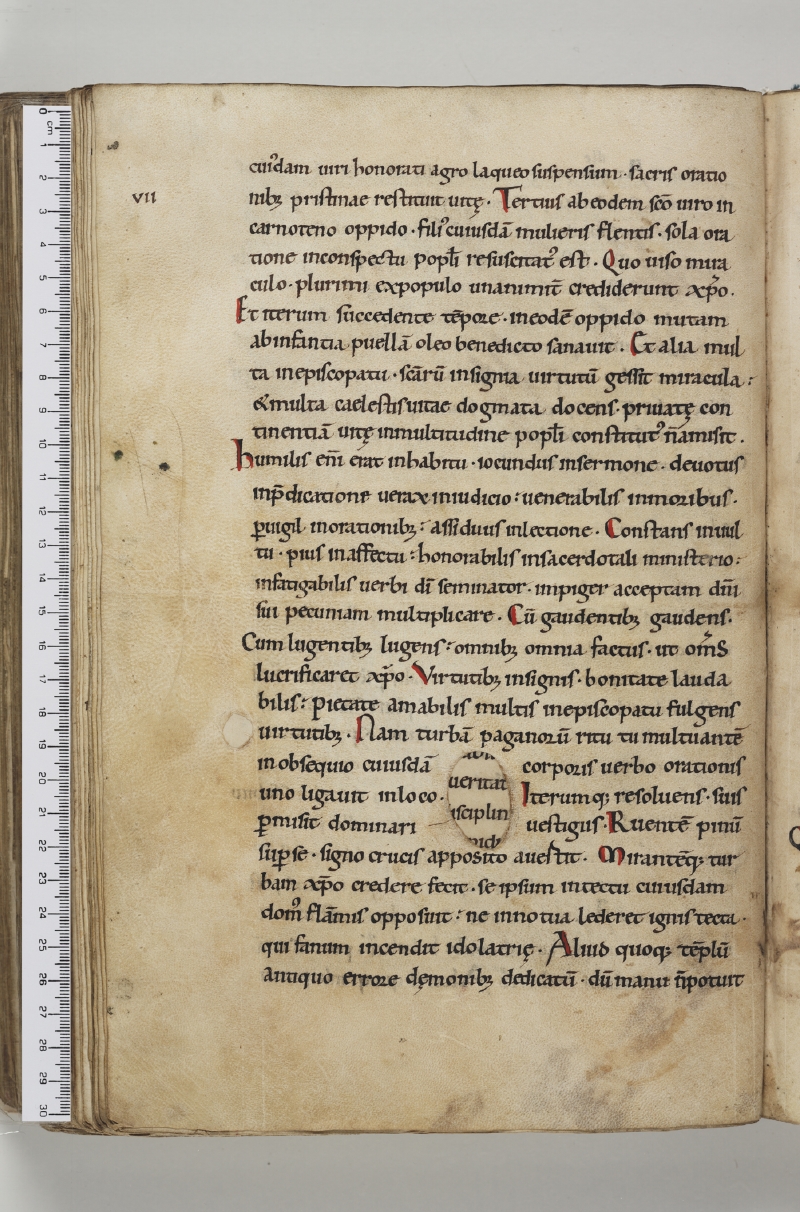 cui᾽dam uiri honorati agro laqueo suspensum · sacris oratio
VII
nib; pristinae restituit uitę · Tertius ab eodem sc̄o uiro in
carnoteno oppido · fili᾽ cuiusdā mulieris flentis · sola ora
tione in conspectu popl̄i resuscitat᾽ est · Quo uiso mira
culo · plurimi ex populo unanimit̄ crediderunt xp̄o .
Et iterum succedente tēpore · in eodē oppido mutam
ab infantia puellā oleo benedicto sanauit . Et alia mul
ta in episcopatu · scārū insignia uirtutū gessit miracula :
& multa caelestis uitae dogmata docens · priuatę con
tinentiā uitę in multitudine popl̄i constitut᾽ n̄ amisit .
humilis enī erat in habitu · iocundus in sermone · deuotus
in p̄dicatione uerax in iudicio : uenerabilis in moribus ·
ꝑuigil in orationib; : assiduus in lectione · Constans in uul
tu · pius in affectu : honorabilis in sacerdotali ministerio :
infatigabilis uerbi dī seminator · impiger acceptam dn̄i
sui pecuniam multiplicare · Cū gaudentib; gaudens ·
Cum lugentib; lugens : omnib; omnia factus · ut om̄s
lucrificaret xp̄o · Virtutib; insignis · bonitate lauda
bilis : pietate amabilis multis in episcopatu fulgens
uirtutib; · Nam turbā paganorū ritu tumultuantē
in obsequio cuiusdā corporis uerbo orationis
ueritat
uno ligauit in loco · Iterumq; resoluens · suis
isciplin
ꝑmisit dominari uestigiis · Ruentē pinū
sup se · signo crucis apposito auertit · Mirantēq; tur
bam xp̄o credere fecit · se ipsum in tectu cuiusdam
dom᾽ flām̄is opposuit : ne innoxia lederet ignis tecta ·
qui fanum incendit idolatrię · Aliud quoq; tēplū
antiquo errore dęmonib; dedicatū · dū manu n̄ potuit